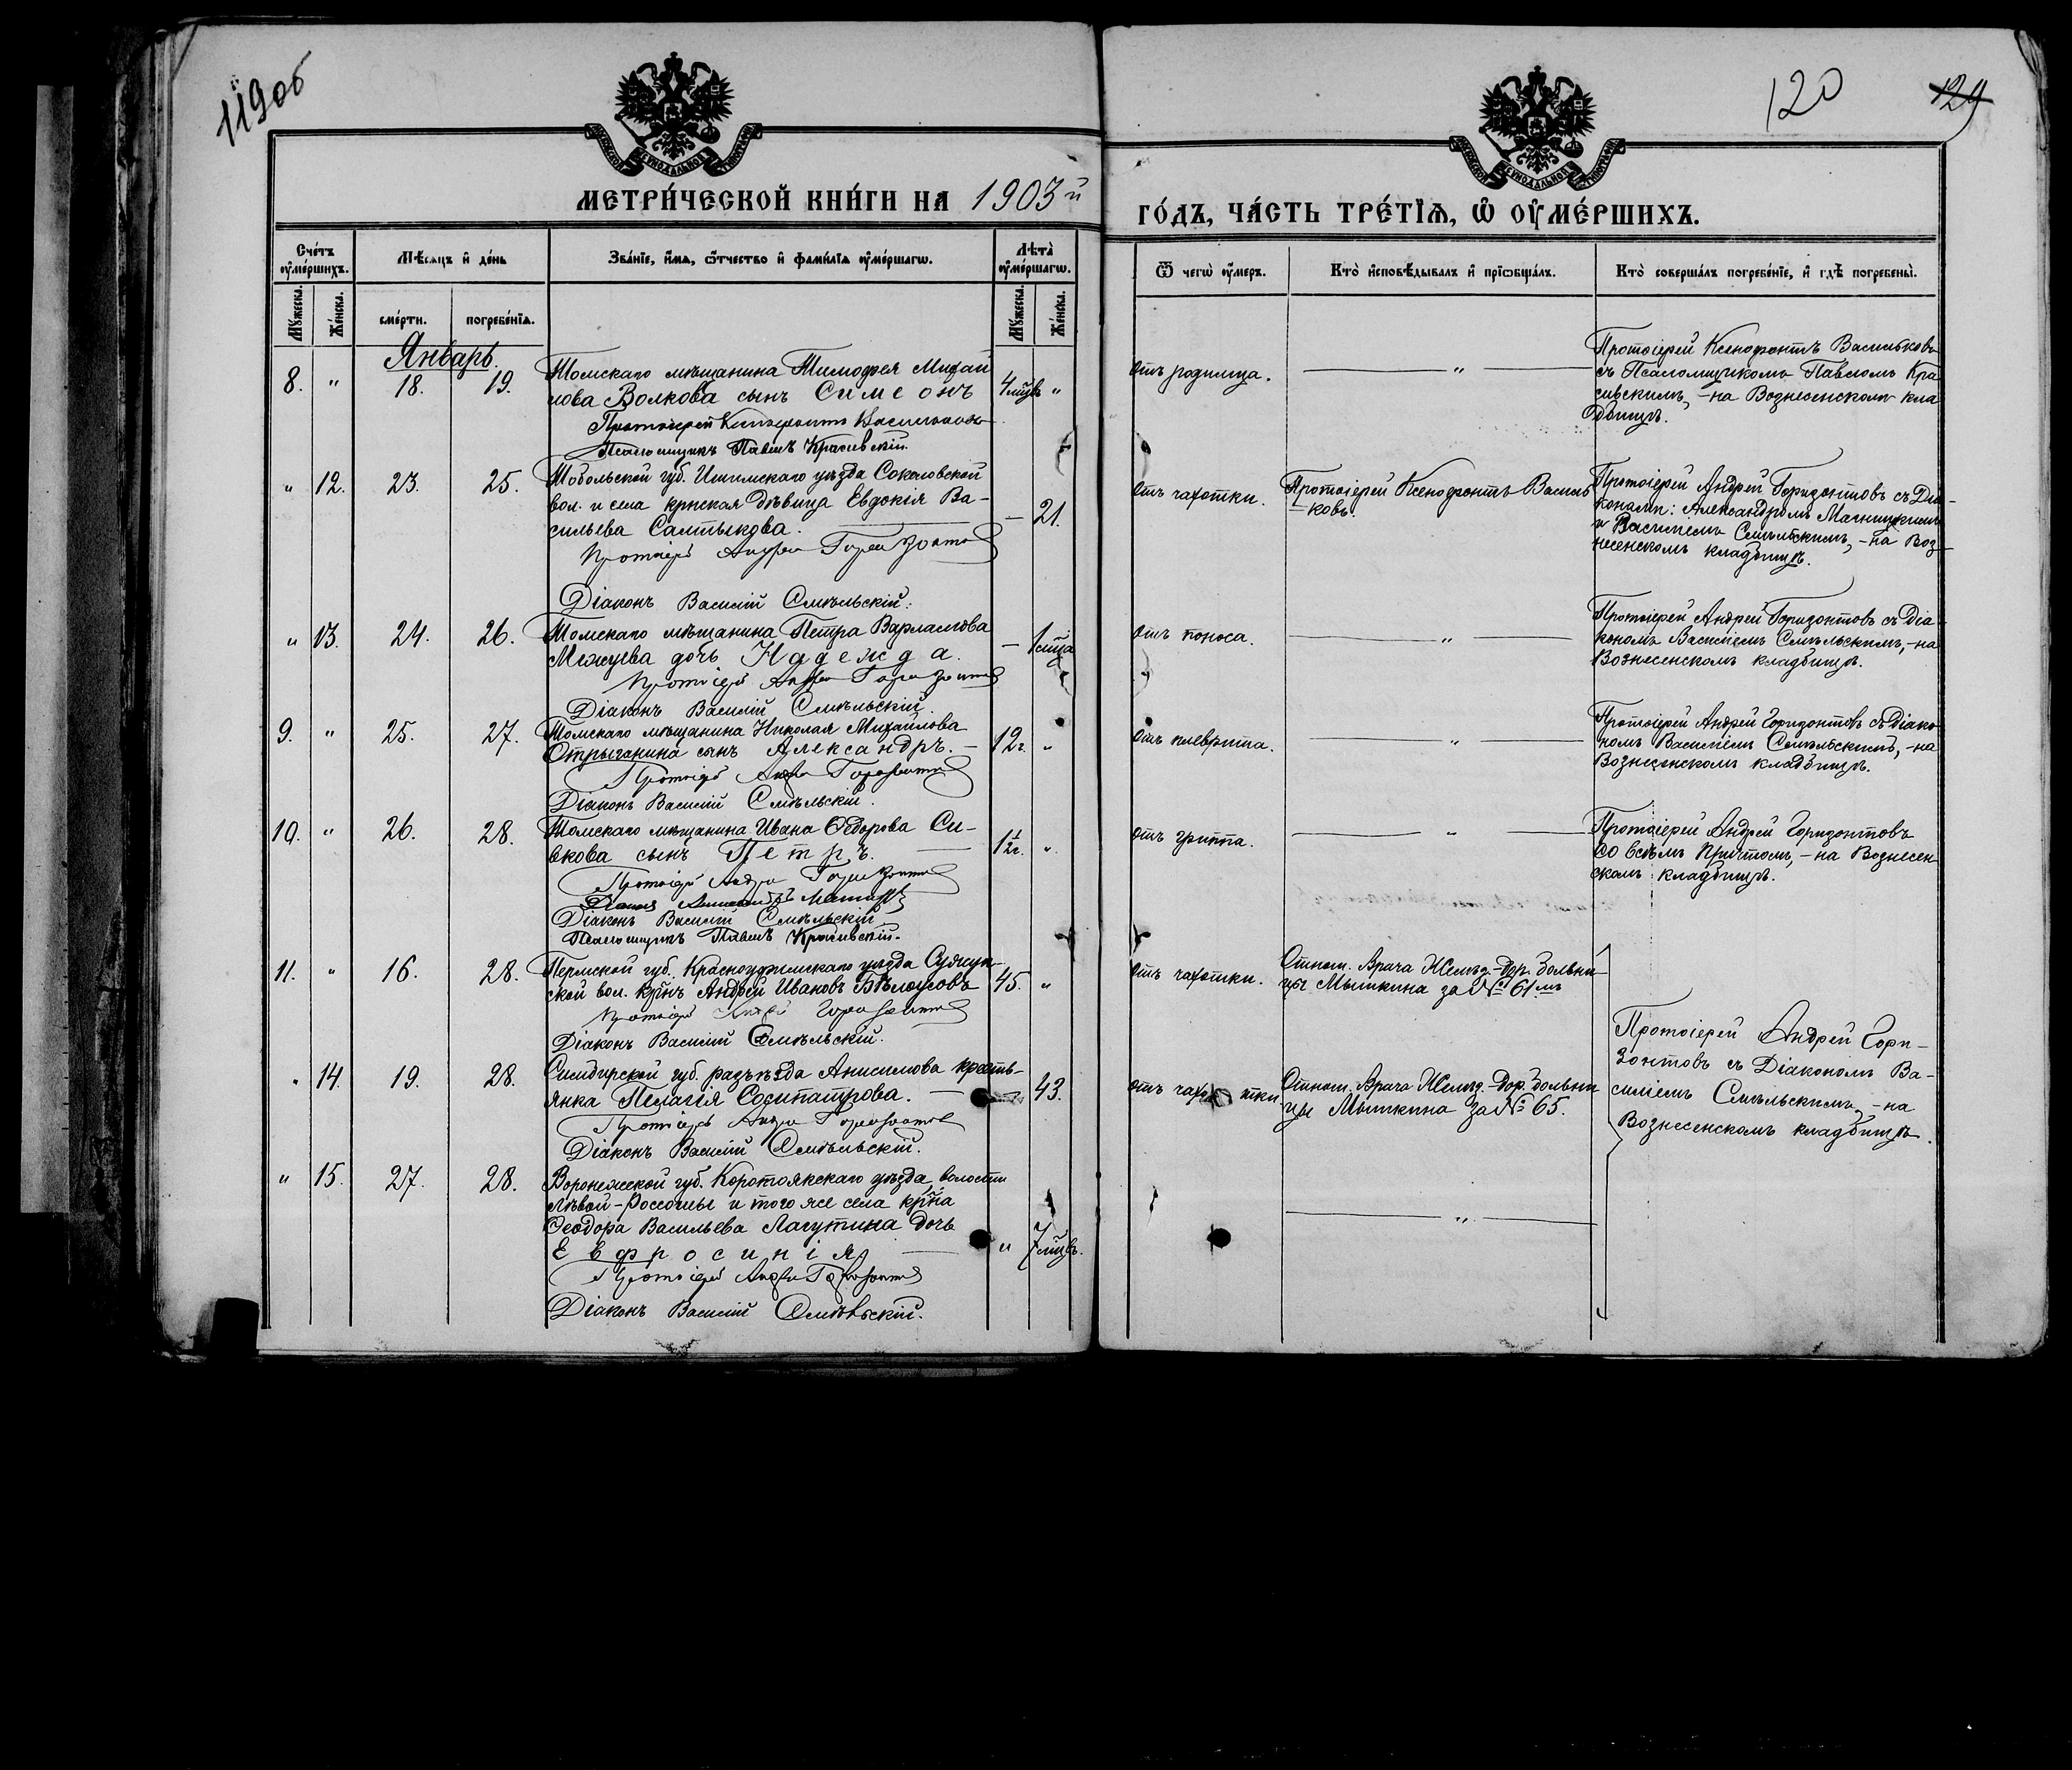 119об
120
129
МОСКОВСКОЙ СѴНОДАЛЬНОЙ ТИПОГРАФІИ
МОСКОВСКОЙ СѴНОДАЛЬНОЙ ТИПОГРАФІИ
МЕТРИ́ЧЕСКОЙ КНИ́ГИ НА 1903й
ГО́ДЪ, ЧА́СТЬ ТРЕ́ТІѦ, Ѿ ОУМЕ́РШИХЪ.
Сче́тъ оумершихъ.
Мѣсяцъ и де́нь
Зва́ніе, имя, ѿтчество и фами́лія оуме́ршагѡ.
Лѣта̀ оуме́ршагѡ.
Ѿ чегѡ̀ оумеръ.
Кто̀ исповѣ́дывалъ и пріѡбща́лъ.
Кто̀ соверша́лъ погребе́ніе, и гдѣ̀ погребены̀.
Мужеска.
Же́нска.
сме́рти.
погребе́нія.
Мужеска.
Же́нска.
Январь.
8. " 18. 19.
Томскаго мѣщанина Тимофея Михай
лова Волкова сынъ Симеонъ
4 мцвъ "
Протоіерей Ксенофонтъ Васильковъ
Псаломщикъ Павелъ Красивскій.
отъ родимца.
"
Протоіерей Ксенофонтъ Васильковъ
съ Псаломщикомъ Павломъ Кра
сивскимъ, - на Вознесенскомъ кла
дбищѣ.
" 12. 23. 25.
Тобольской губ. Ишимскаго уѣзда Соколовской
вол. и села крнская дѣвица Евдокія Ва-
сильева Салтыкова.
— 21.
Протоіерей Андрей Горизонтовъ
Діаконъ Василій Смѣльскій.
отъ чахотки.
Протоіерей Ксенофонтъ Василь
ковъ.
Протоіерей Андрей Горизонтовъ съ Діа-
конами: Александромъ
и Василіемъ Смѣльскимъ, - на Воз-
несенскомъ кладбищѣ.
" 13. 24. 26.
Томскаго мѣщанина Петра Варламова
дочь Надежда.
— 1 мца
Протоіерей Андрей Горизонтовъ
Діаконъ Василій Смѣльскій.
отъ поноса.
"
Протоіерей Андрей Горизонтовъ съ Діа-
кономъ Василіемъ Смѣльскимъ, - на
Вознесенскомъ кладбищѣ.
9. " 25. 27.
Томскаго мѣщанина Николая Михайлова
Отрыганина сынъ Александръ. —
12 г. "
Протоіерей Андрей Горизонтовъ
Діаконъ Василій Смѣльскій.
отъ плеврита.
"
Протоіерей Андрей Горизонтовъ съ Діако
номъ Василіемъ Смѣльскимъ, - на
Вознесенскомъ кладбищѣ.
10. " 26. 28.
Томскаго мѣщанина Ивана Ѳедорова Си-
вкова сынъ Петръ.
"
Протоіерей Андрей Горизонтовъ
Діаконъ Василій Смѣльскій
Псаломщикъ Павелъ Красивскій.
отъ гриппа.
"
Протоіерей Андрей Горизонтовъ
со всѣмъ причтомъ, - на Вознесен
скомъ кладбищѣ.
11. " 16. 28.
Пермской губ. Красноуфимскаго уѣзда
ской вол. крнъ Андрей Ивановъ Бѣлоусовъ
45. "
Протоіерей Андрей Горизонтовъ
Діаконъ Василій Смѣльскій.
отъ чахотки.
Отнош. Врача Желѣз-Дор. Больни
цы Мышкина за № 61мъ
Протоіерей Андрей Гори-
зонтовъ съ Діакономъ Ва-
силіемъ Смѣльскимъ, - на
Вознесенскомъ кладбищѣ.
" 14. 19. 28.
Симбирской губ. разъѣзда Анисимова кресть-
янка Пелагія Сосипатрова. —
43.
Протоіерей Андрей Горизонтовъ
Діаконъ Василій Смѣльскій.
отъ чахотки
Отнош. Врача Желѣз-Дор. Больни
цы Мышкина за № 65.
" 15. 27. 28.
Воронежской губ. Коротоякскаго уѣзда, волости
Лѣвой-Россоши и того же села крнна
Ѳеодора Васильева Лагутина дочь
Евфросинія
" 7 мцвъ.
Протоіерей Андрей Горизонтовъ
Діаконъ Василій Смѣльскій.
"